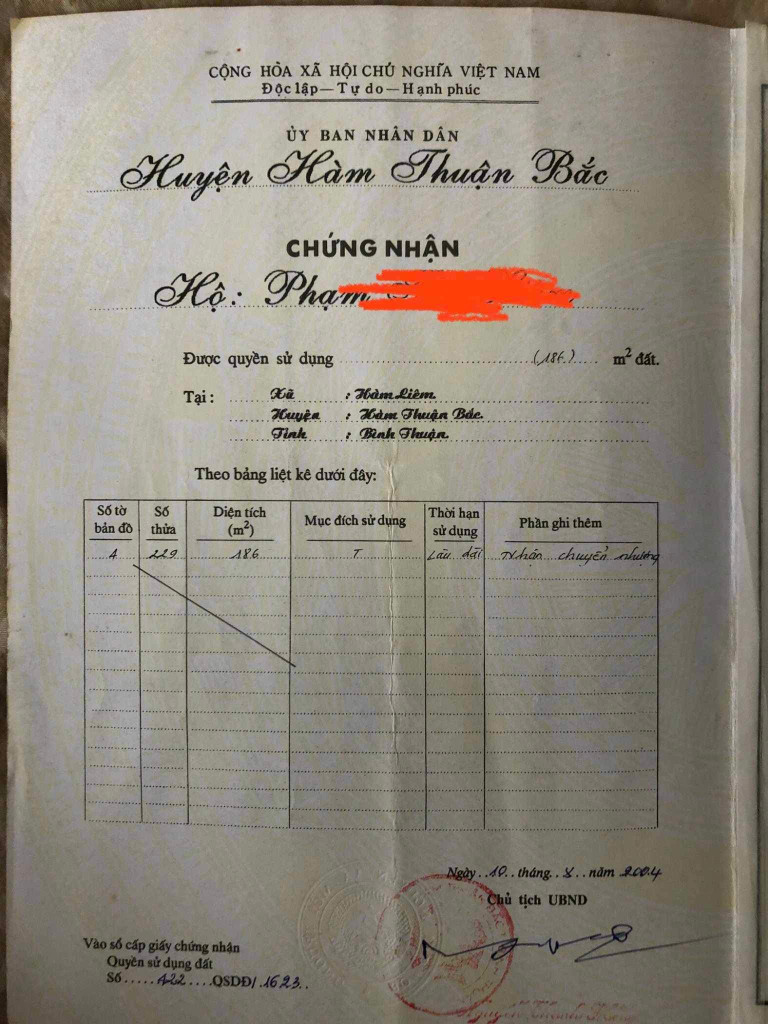 CỘNG HÒA XÃ HỘI CHỦ NGHĨA VIỆT NAM
Độc lập — Tự do — Hạnh phúc
ỦY BAN NHÂN DÂN
Huyện Hàm Thuận Bắc
CHỨNG NHẬN
Hộ: Phạm
Được quyền sử dụng (186) m² đất.
Tại: Xã : Hàm Liêm.
Huyện : Hàm Thuận Bắc.
Tỉnh : Bình Thuận.
Theo bảng liệt kê dưới đây:
Số tờ bản đồ Số thửa Diện tích (m²) Mục đích sử dụng Thời hạn sử dụng Phần ghi thêm
A 229 186 T Lâu dài nhận chuyển nhượng
Ngày 10 tháng X năm 2004
Chủ tịch UBND
Vào sổ cấp giấy chứng nhận
Quyền sử dụng đất
Số A22 QSDĐ/ 1623